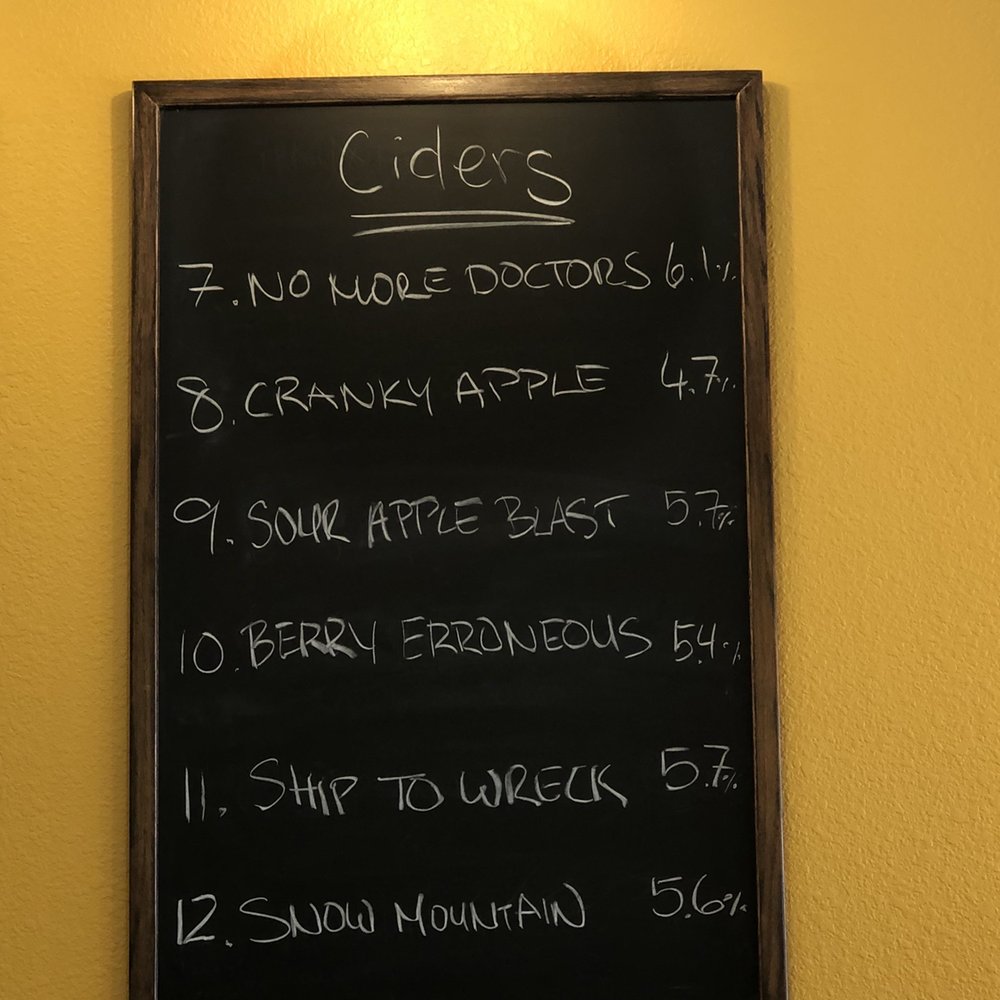 Ciders
7. NO MORE DOCTORS 6.1%
8. CRANKY APPLE 4.7%
9. SOUR APPLE BLAST 5.7%
10. BERRY ERRONEOUS 5.4%
11. SHIP TO WRECK 5.7%
12. SNOW MOUNTAIN 5.6%